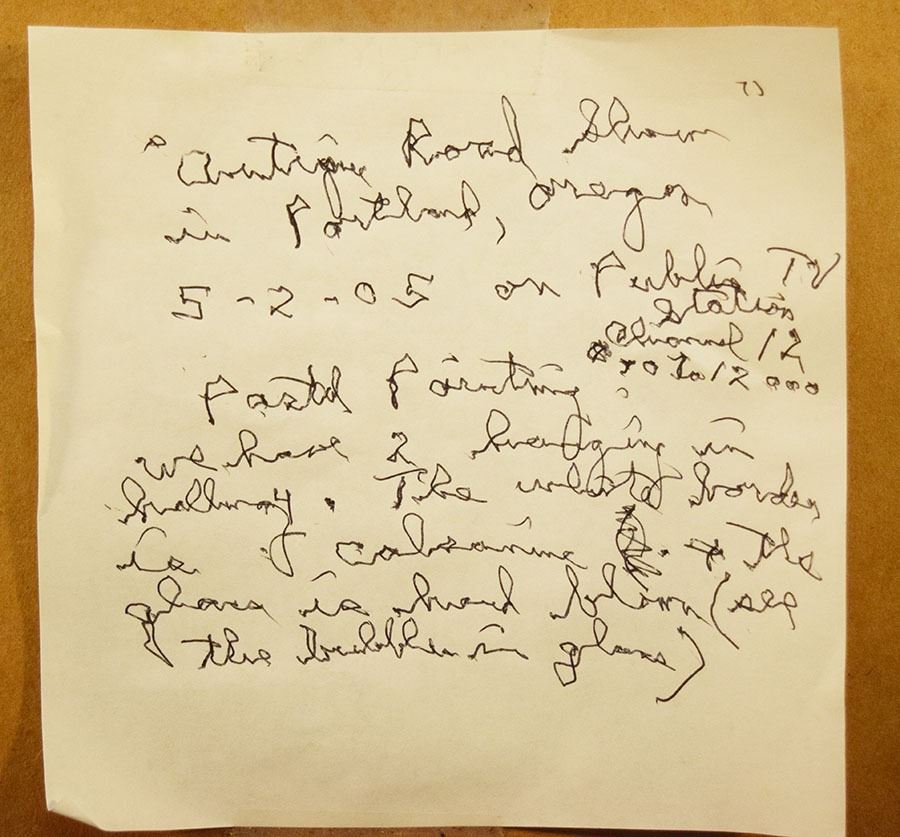 " Antique Road Show "
in Portland, Oregon
5-2-05 on Public TV
Station
Channel 12
10 to 12 000
Pastel Painting
we have 2 hanging in
hallway. The white border
is of calsamine + The
glass is hand blown (see
the bubbles in glass)